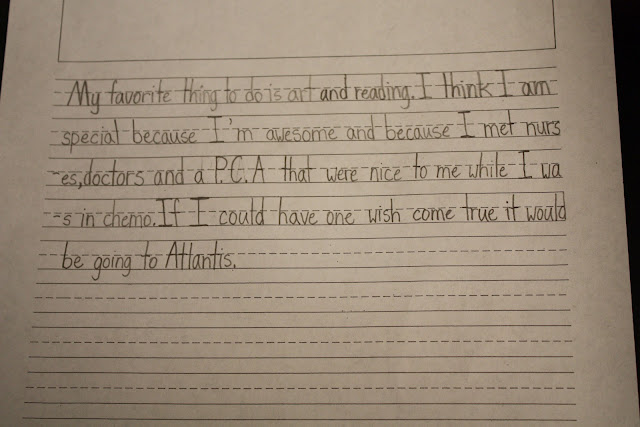 My favorite thing to do is art and reading. I think I am
special because I'm awesome and because I met nurs
-es, doctors and a P.C.A that were nice to me while I wa
-s in chemo. If I could have one wish come true it would
be going to Atlantis.